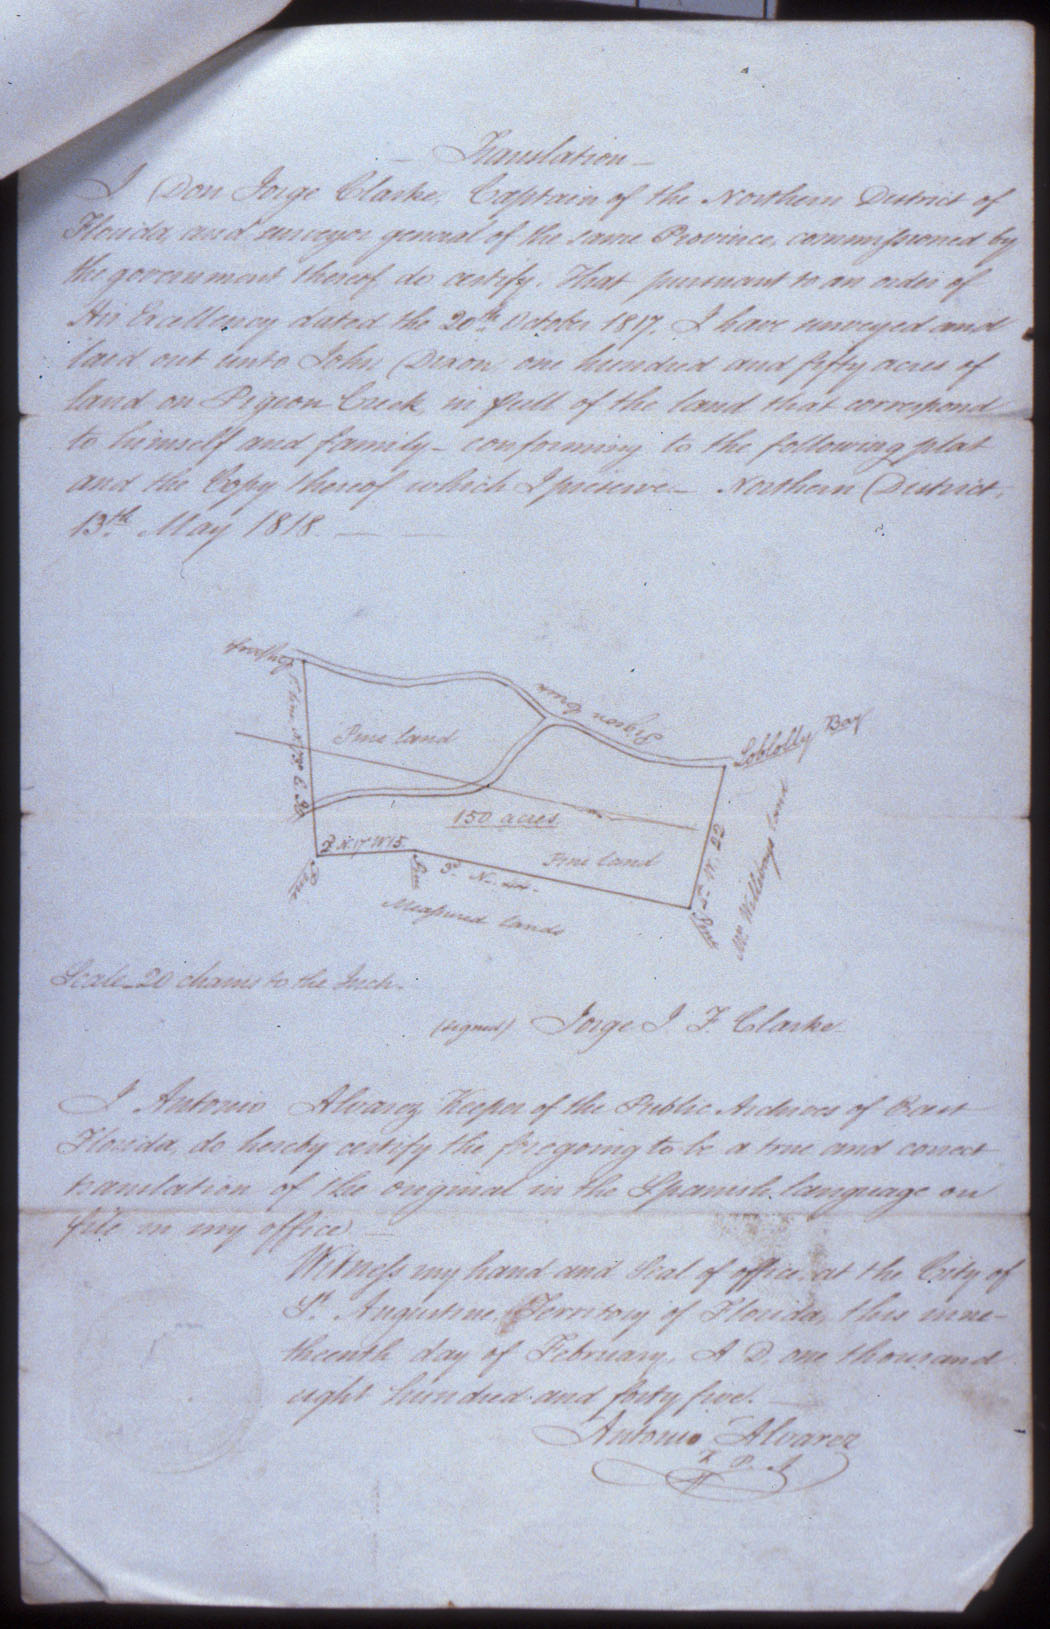 — Translation —
I Don Jorge Clarke, Captain of the Northern District of
Florida, and surveyor general of the same Province, commissioned by
the government thereof do certify. That pursuant to an order of
His Excellency dated the 20th October 1817. I have surveyed and
laid out unto John Dixon, one hundred and fifty acres of
land on Pigeon Creek, in full of the land that correspond
to himself and family – conforming to the following plat
and the Copy thereof which I preserve – Northern District,
13th May 1818. —
Pigeon Creek
Loblolly Bay
Pine land
150 acres
2d N. 17° W 15.
Pine land
Pine
Pine
3d N. 44.
Pine
W. 22
Mr. Willeboys land
Measured lands
Scale – 20 chains to the Inch.
(signed) Jorge J. F. Clarke
I Antonio Alvarez Keeper of the Public Archives of East
Florida, do hereby certify the foregoing to be a true and correct
translation of the original in the Spanish language on
file in my office —
Witness my hand and Seal of office at the City of
St. Augustine, Territory of Florida, this nine-
theenth day of February, A D. one thousand
eight hundred and forty five. —
Antonio Alvarez
K P. A